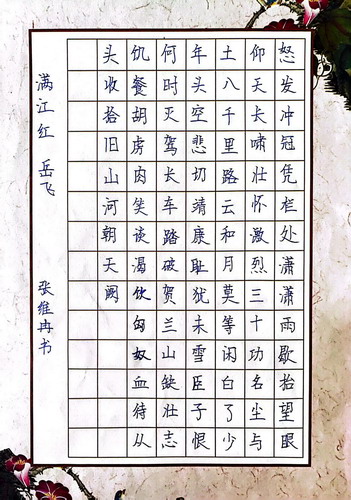 怒发冲冠凭栏处潇潇雨歇抬望眼
仰天长啸壮怀激烈三十功名尘与
土八千里路云和月莫等闲白了少
年头空悲切靖康耻犹未雪臣子恨
何时灭驾长车踏破贺兰山缺壮志
饥餐胡虏肉笑谈渴饮匈奴血待从
头收拾旧山河朝天阙
满江红 岳飞 张维冉书